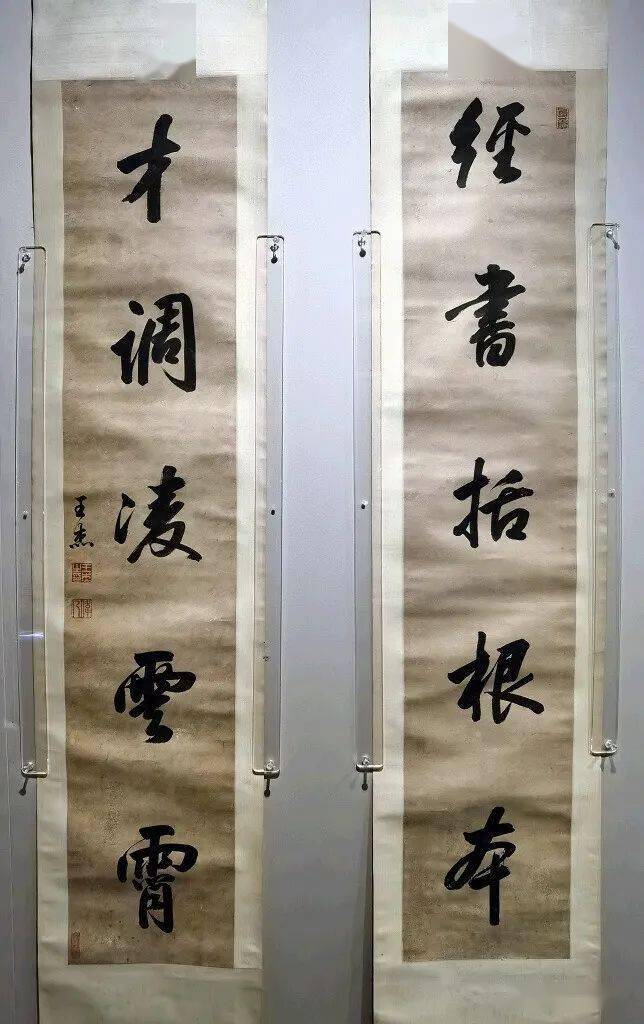 經書括根本
才調凌雲霄
王杰